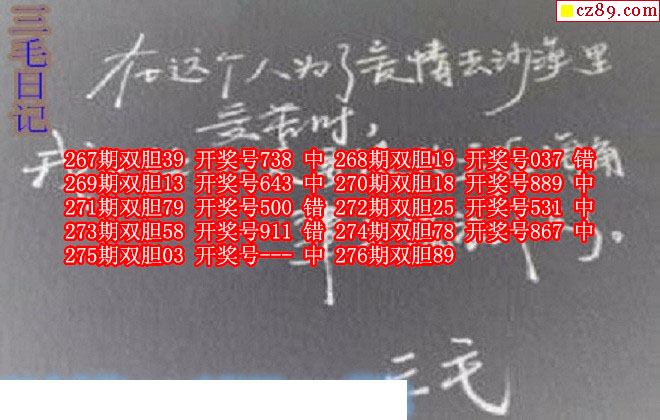 cz89.com
三毛日记
在这个人为了爱情去沙漠里
受苦时，
267期双胆39 开奖号738 中 268期双胆19 开奖号037 错
269期双胆13 开奖号643 中 270期双胆18 开奖号889 中
271期双胆79 开奖号500 错 272期双胆25 开奖号531 中
273期双胆58 开奖号911 错 274期双胆78 开奖号867 中
275期双胆03 开奖号--- 中 276期双胆89
三毛